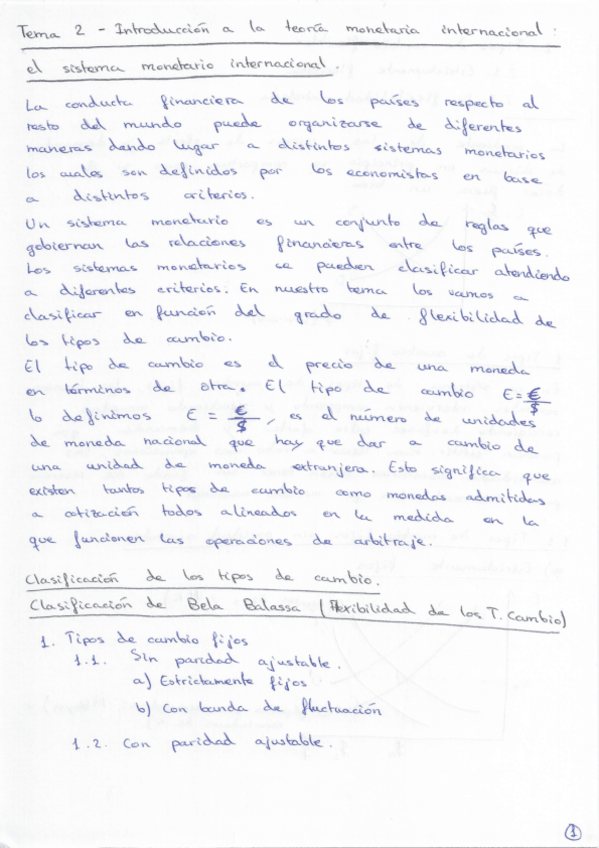 Tema 2 - Introducción a la teoría monetaria internacional:
el sistema monetario internacional.
La conducta financiera de los países respecto al
resto del mundo puede organizarse de diferentes
maneras dando lugar a distintos sistemas monetarios
los cuales son definidos por los economistas en base
a distintos criterios.
Un sistema monetario es un conjunto de reglas que
gobiernan las relaciones financieras entre los países.
Los sistemas monetarios se pueden clasificar atendiendo
a diferentes criterios. En nuestro tema los vamos a
clasificar en función del grado de flexibilidad de
los tipos de cambio.
El tipo de cambio es el precio de una moneda
en términos de otra. El tipo de cambio E = €/$
lo definimos E = €/$, es el número de unidades
de moneda nacional que hay que dar a cambio de
una unidad de moneda extranjera. Esto significa que
existen tantos tipos de cambio como monedas admitidas
a cotización todos alineados en la medida en la
que funcionen las operaciones de arbitraje.
Clasificación de los tipos de cambio.
Clasificación de Bela Balassa (Flexibilidad de los T. Cambio)
1. Tipos de cambio fijos
1.1. Sin paridad ajustable.
a) Estrictamente fijos
b) Con banda de fluctuación
1.2. Con paridad ajustable.
1